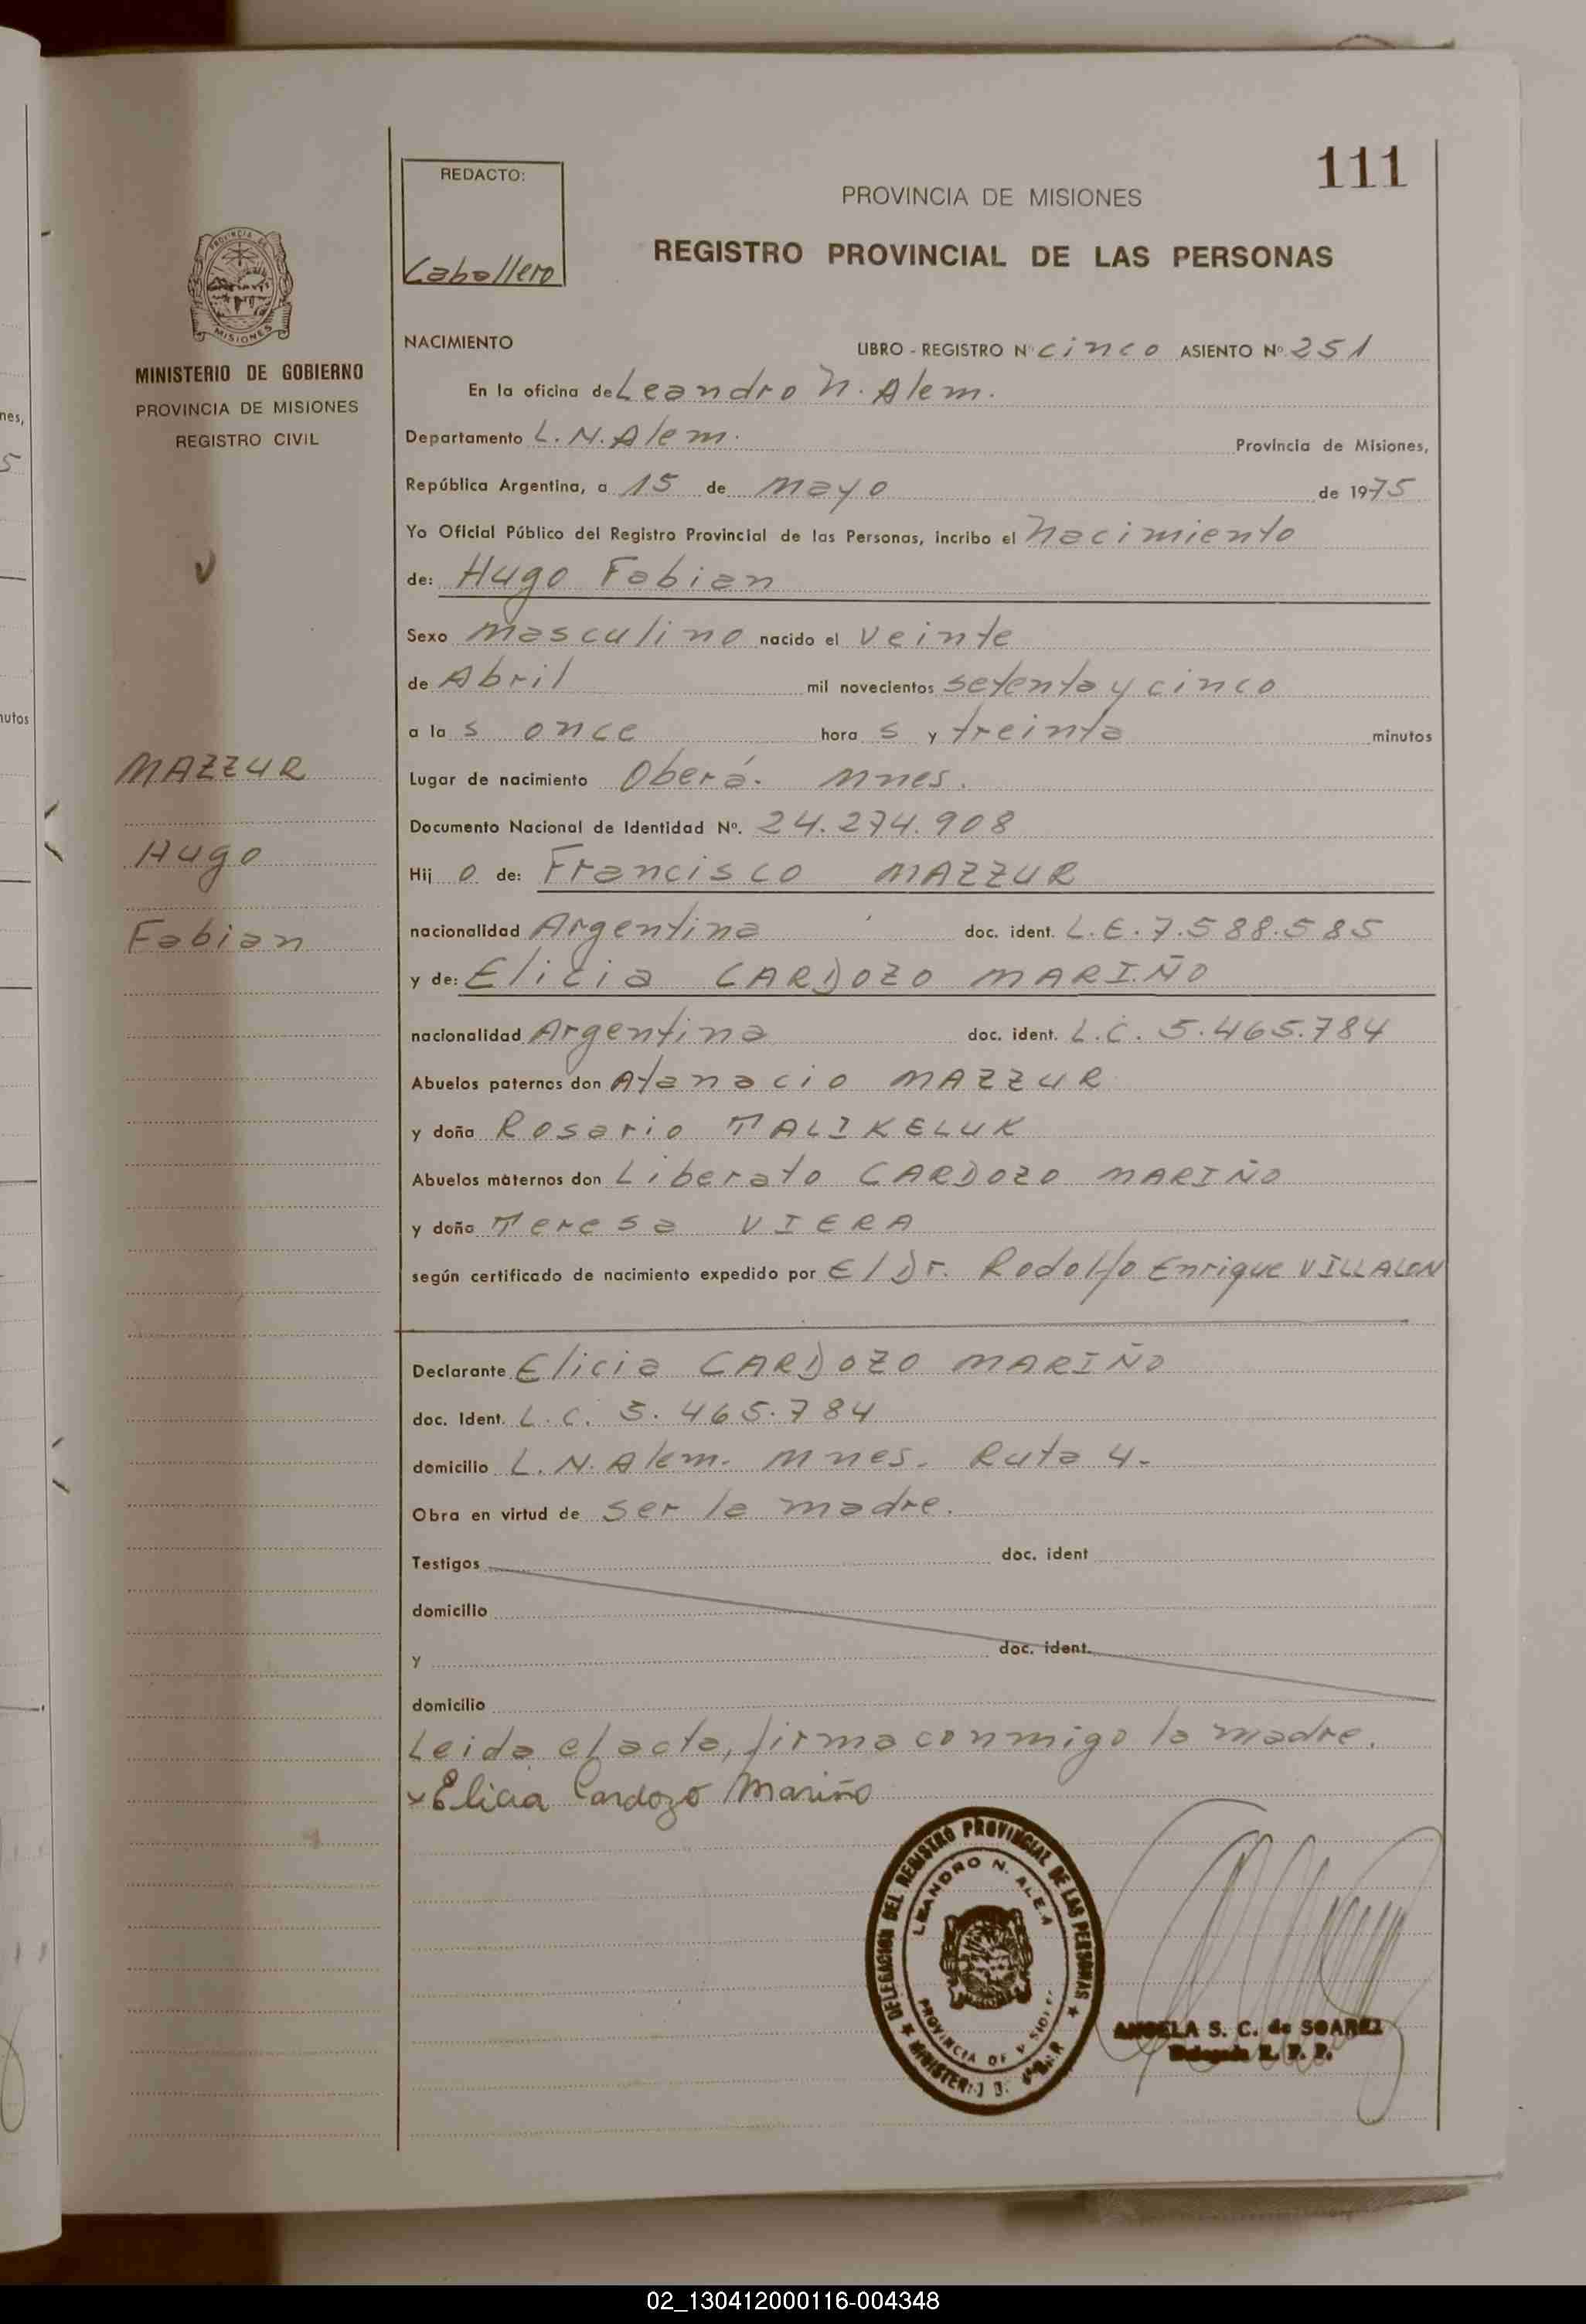 111
REDACTO:
Caballero
PROVINCIA DE MISIONES
REGISTRO PROVINCIAL DE LAS PERSONAS
PROVINCIA DE
MISIONES
MINISTERIO DE GOBIERNO
PROVINCIA DE MISIONES
REGISTRO CIVIL
MAZZUR
Hugo
Fabian
NACIMIENTO LIBRO - REGISTRO Nº cinco ASIENTO Nº 251
En la oficina de Leandro N. Alem.
Departamento L. N. Alem. Provincia de Misiones,
República Argentina, a 15 de Mayo de 1975
Yo Oficial Público del Registro Provincial de las Personas, incribo el Nacimiento
de: Hugo Fabian
Sexo Masculino nacido el Veinte
de Abril mil novecientos setenta y cinco
a la s once hora s y treinta minutos
Lugar de nacimiento Oberá. Mnes.
Documento Nacional de Identidad Nº. 24.274.908
Hij o de: Francisco MAZZUR
nacionalidad Argentina doc. ident. L.E. 7.588.585
y de: Elicia CARDOZO MARIÑO
nacionalidad Argentina doc. ident. L.C. 5.465.784
Abuelos paternos don Atanacio MAZZUR
y doña Rosario TALIKELUK
Abuelos maternos don Liberato CARDOZO MARIÑO
y doña Teresa VIERA
según certificado de nacimiento expedido por El Dr. Rodolfo Enrique VILLALON
Declarante Elicia CARDOZO MARIÑO
doc. Ident. L.C. 5.465.784
domicilio L. N. Alem. Mnes. Ruta 4.
Obra en virtud de ser la madre.
Testigos doc. ident
domicilio
y doc. ident.
domicilio
Leida el acta, firma conmigo la madre.
x Elicia Cardozo Mariño
DELEGACION DEL REGISTRO PROVINCIAL DE LAS PERSONAS
LEANDRO N.
PROVINCIA DE
ANGELA S. C. de SOAREZ
Delegada R. P. P.
nes,
5
nutos
02_130412000116-004348